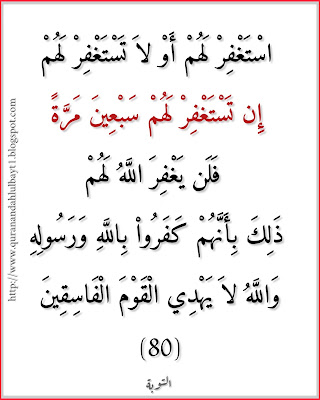 اسْتَغْفِرْ لَهُمْ أَوْ لاَ تَسْتَغْفِرْ لَهُمْ
إِن تَسْتَغْفِرْ لَهُمْ سَبْعِينَ مَرَّةً
فَلَن يَغْفِرَ اللَّهُ لَهُمْ
ذَلِكَ بِأَنَّهُمْ كَفَرُواْ بِاللَّهِ وَرَسُولِهِ
وَاللَّهُ لاَ يَهْدِي الْقَوْمَ الْفَاسِقِينَ
(80)
التوبة
http://www.quranandahlulbayt1.blogspot.com